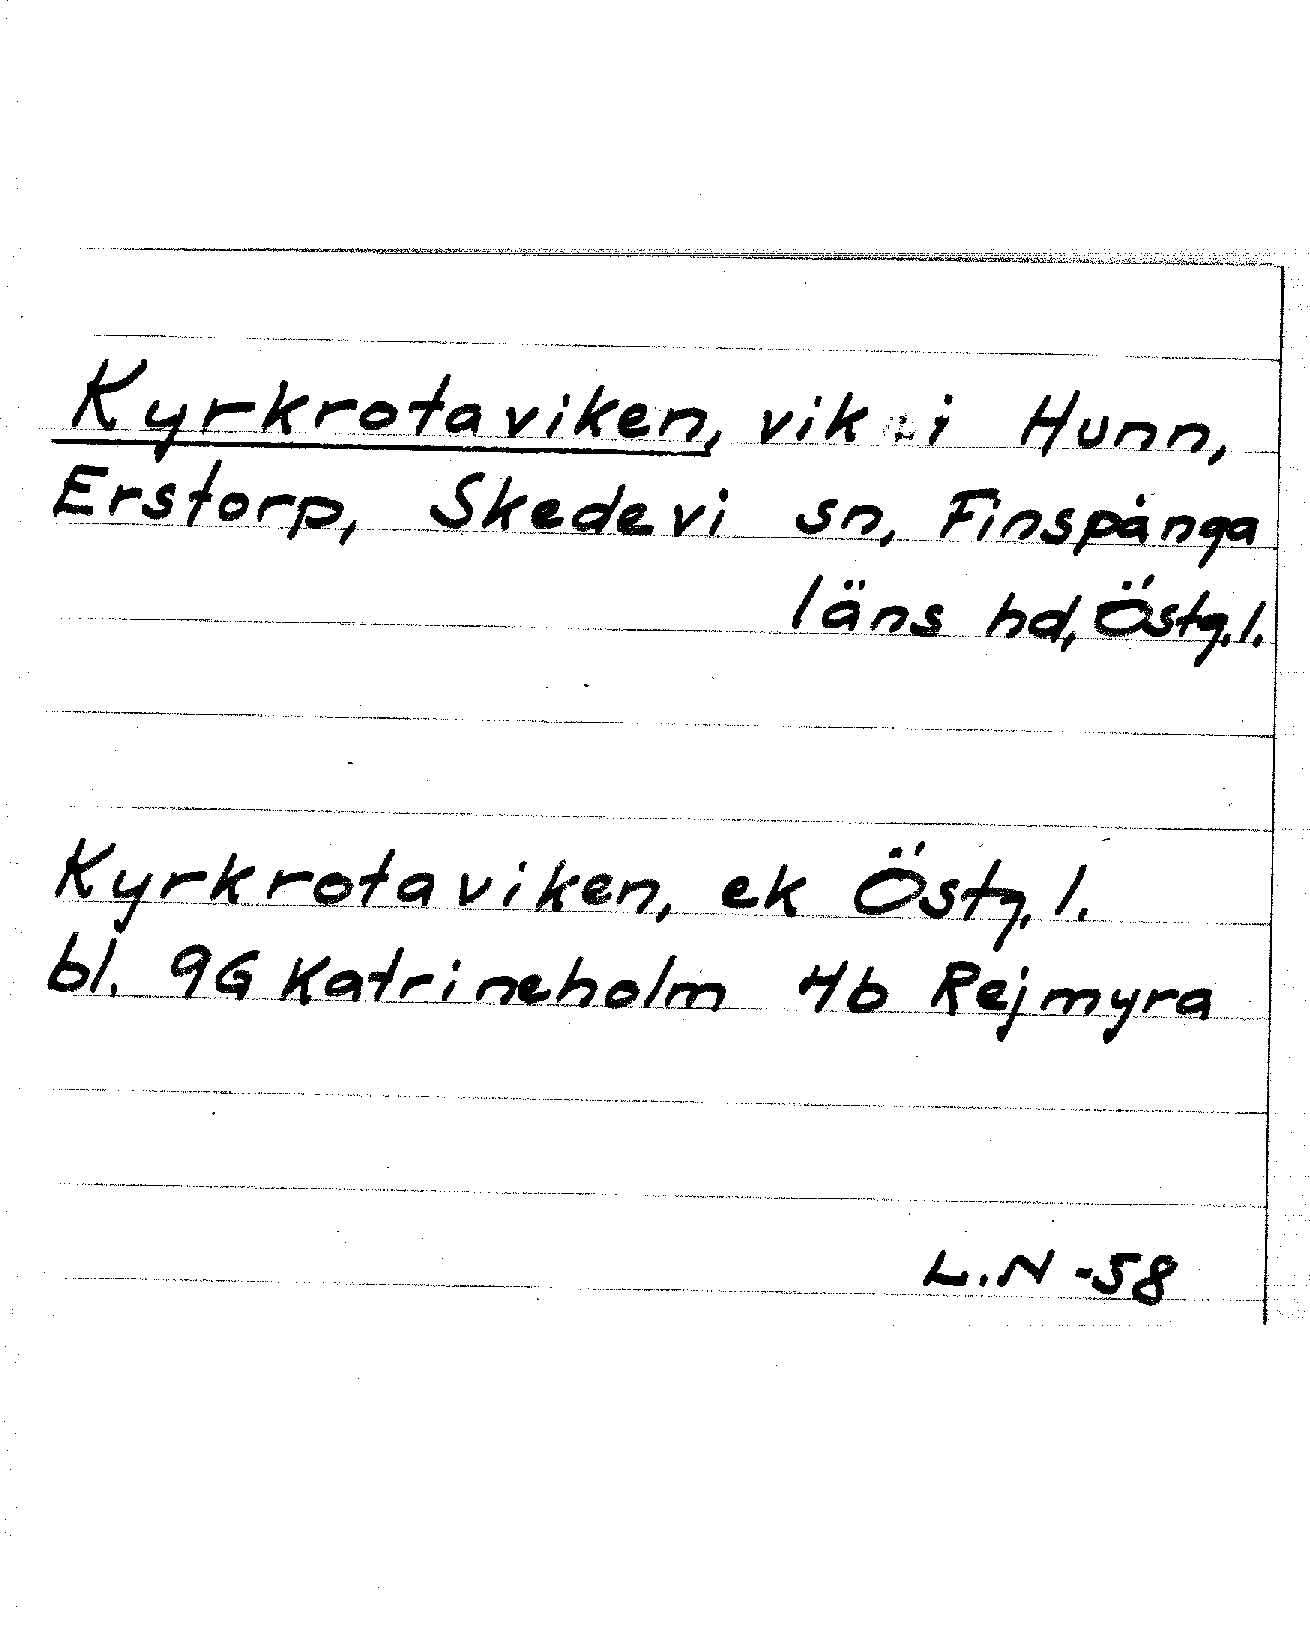 Kyrkrotaviken, vik i Hunn,
Erstorp, Skedevi sn, Finspånga
läns hd, Östg.l.
Kyrkrotaviken, ek Östg.l.
bl. 9G Katrineholm 4b Rejmyra
L.N -58